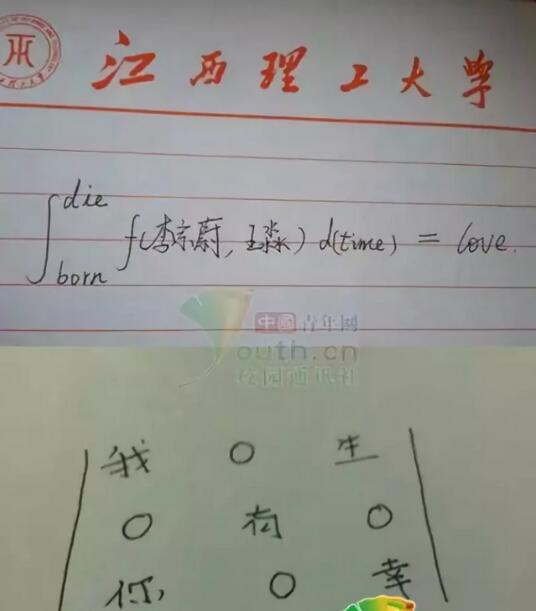 江西理工大学
∫_born^die f(李宗蔚, 王淼) d(time) = love.
中国青年网
youth.cn
校园通讯社
我 0 生
0 有 0
你 0 幸